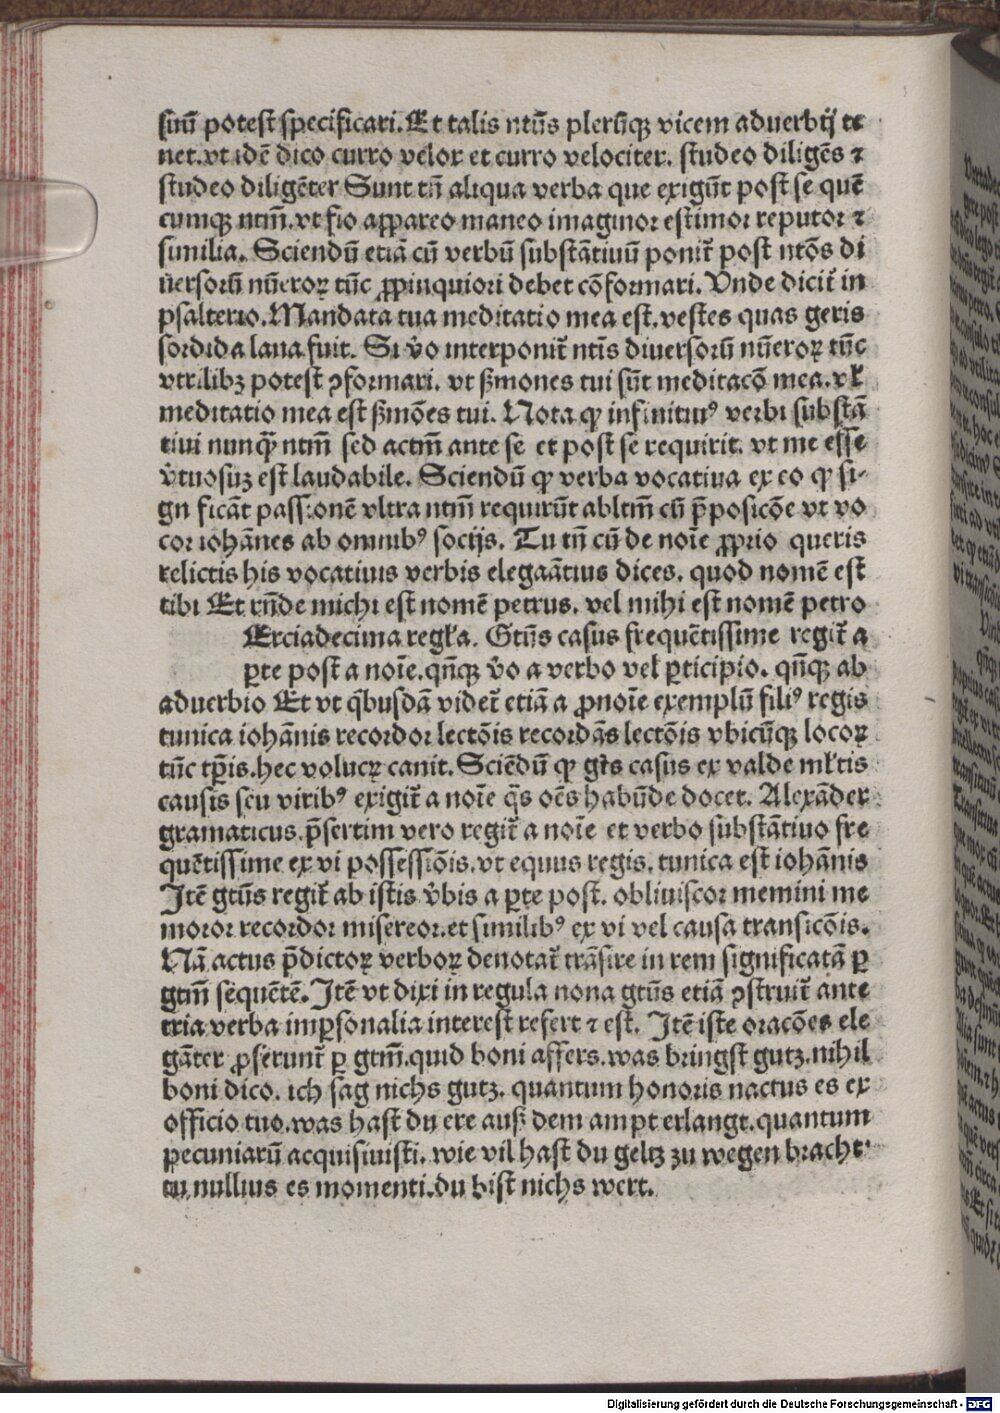 sinū potest specificari. Et talis ntūs plerūqꝫ vicem aduerbij te
net. vt idē dico curro velox et curro velociter. studeo diligēs ⁊
studeo diligēter Sunt tn̄ aliqua verba que exigūt post se quē
cumqꝫ ntm̄. vt fio appareo maneo imaginor estimor reputor ⁊
similia. Sciendū etiā cū verbū substātiuū ponit̄ post ntōs di
uersorū nūeroꝝ tūc ꝓpinquiori debet cōformari. Vnde dicit̄ in
psalterio. Mandata tua meditatio mea est. vestes quas geris
sordida lana fuit. Si v̄o interponit̄ ntīs diuersorū nūeroꝝ tūc
vtrilibꝫ potest ꝯformari. vt ßmones tui sūt meditacō mea. vł
meditatio mea est ßmōes tui. Nota ꝙ infinitiuꝰ verbi substā
tiui nunqꝫ̄ ntm̄ sed actm̄ ante se et post se requirit. vt me esse
v̄tuosūꝫ est laudabile. Sciendū ꝙ verba vocatiua ex eo ꝙ si-
gnificāt passionē vltra ntm̄ requirūt abltm̄ cū p̄posicōe vt vo
cor iohānes ab omnibꝰ socijs. Tu tn̄ cū de noīe ꝓprio queris
relictis his vocatiuis verbis elegāntius dices. quod nomē est
tibi Et rn̄de michi est nomē petrus. vel mihi est nomē petro
Erciadecima regła. Gtūs casus frequētissime regit̄ a
ꝑte post a noīe. qn̄qꝫ v̄o a verbo veł ꝑticipio. qn̄qꝫ ab
aduerbio Et vt qͥbusdā videt̄ etiā a ꝓnoīe exemplū filiꝰ regis
tunica iohānis recordor lectōis recordās lectōis vbicūqꝫ locoꝝ
tūc tꝑis. hec volucꝝ canit. Sciēdū ꝙ gtīs casus ex valde młtis
causis seu viribꝰ exigit̄ a noīe q̄s oēs habūde docet. Alexāder
gramaticus. p̄sertim vero regit̄ a noīe et verbo substātiuo fre
quētissime ex vi possessiōis. vt equus regis. tunica est iohānis
Itē gtūs regit̄ ab istis v̄bis a ꝑte post. obliuiscor memini me
moror recordor misereor. et similibꝰ ex vi vel causa transicōis.
Nā actus p̄dictoꝝ verboꝝ denotat̄ trāsire in rem significatā ꝑ
gtm̄ sequētē. Itē vt dixi in regula nona gtūs etiā ꝯstruit̄ ante
tria verba imꝑsonalia interest refert ⁊ est. Itē iste oracōes ele
gāter ꝓferunt̄ ꝑ gtm̄. quid boni affers. was bringst gutz. nihil
boni dico. ich sag nichs gutz. quantum honoris nactus es ex
officio tuo. was hast du ere auß dem ampt erlangt. quantum
pecuniarū acquisiuisti. wie vil hast du geltz zu wegen bracht
tu nullius es momenti. du bist nichs wert.
Digitalisierung gefördert durch die Deutsche Forschungsgemeinschaft - DFG